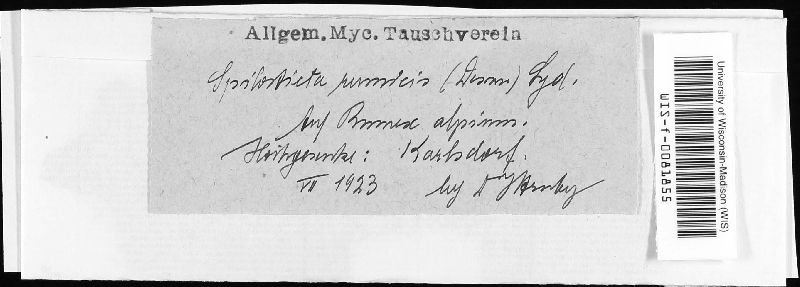 Allgem. Myc. Tauschverein
Spilosticta rumicis (Desm) Syd.
Auf Rumex alpinus.
Hochgesenke: Karlsdorf.
VII 1923 leg Dr Hruby
University of Wisconsin-Madison (WIS)
WIS-f-0081855